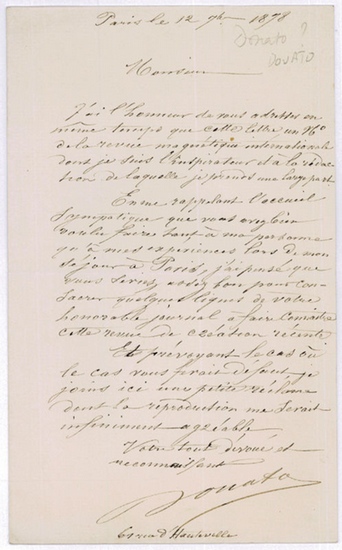 Paris le 12 9bre 1878
Donato ?
DONATO
Monsieur
J'ai l'honneur de vous adresser en
même temps que cette lettre un No
de la revue magnétique internationale
dont je suis l'inspirateur et à la rédac
tion de laquelle je prends une large part.
En me rappelant l'accueil
sympatique que vous avez bien
voulu faire tant à ma personne
qu'à mes expériences lors de mon
séjour à Paris, j'ai pensé que
vous serez assez bon pour con-
sacrer quelques lignes de votre
honorable journal à faire connaître
cette revue de création récente
Et prévoyant le cas où
le cas vous ferait défaut je
joins ici une petite réclame
dont la reproduction me serait
infiniment agréable
Votre tout dévoué et
reconnaissant
Donato
61 rue d'Hauteville